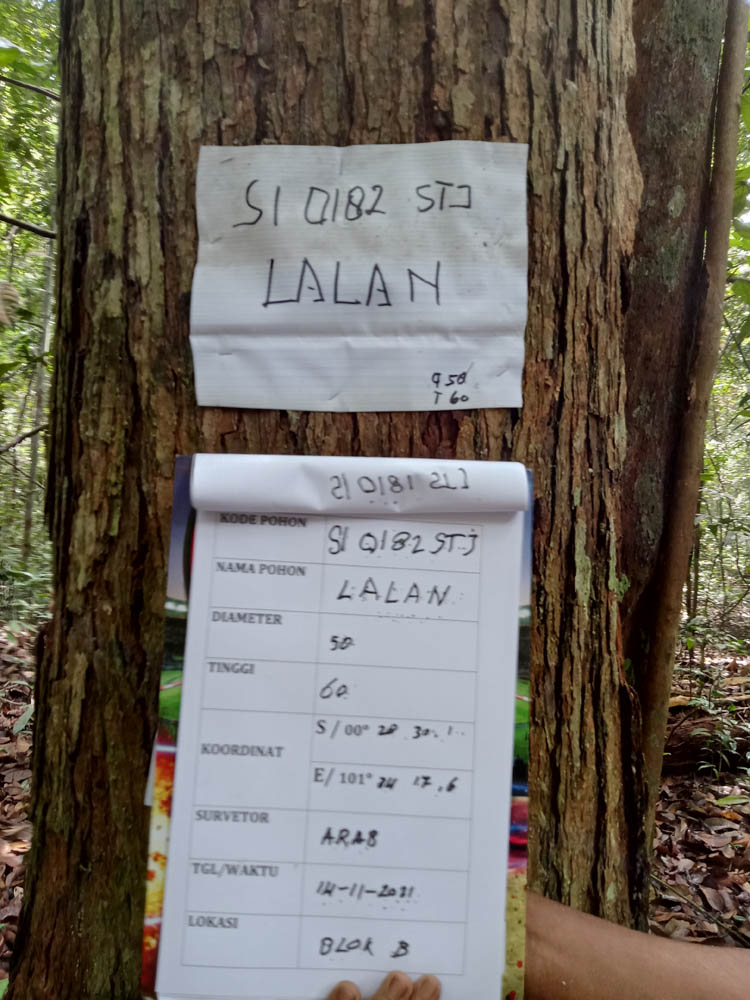 SI 0182 STJ
LALAN
Q 50
T 60
SI 0181 STJ
KODE POHON SI 0182 STJ
NAMA POHON LALAN
DIAMETER 50
TINGGI 60
KOORDINAT
S / 00° 28 30. 1
E/ 101° 34 17.6
SURVETOR ARAB
TGL/WAKTU 14-11-2021
LOKASI BLOK B